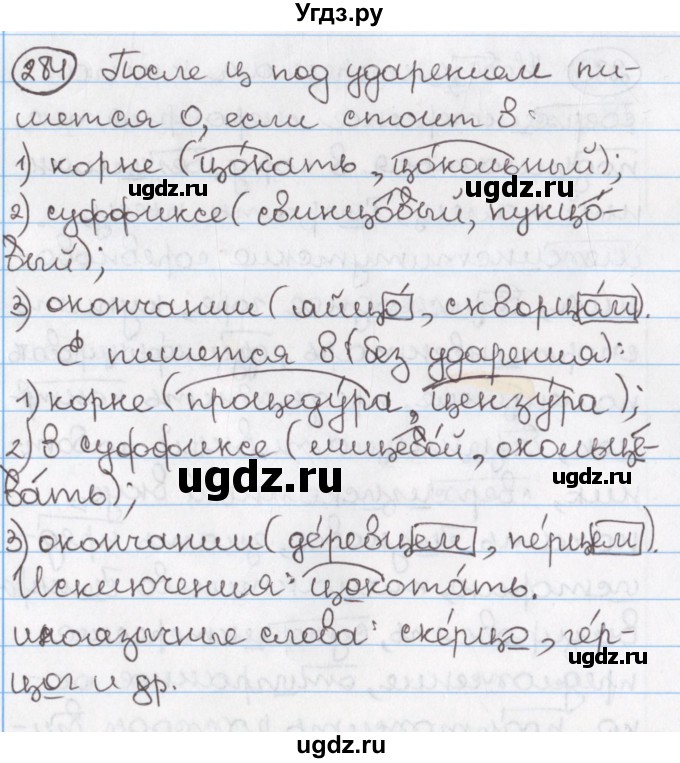 Угдз.ру
284 После ц под ударением пи-
шется О, если стоит в:
1) корне (цо́кать, цо́кольный);
ugdz.ru ugdz.ru
2) суффиксе (свинцо́вый, пунцо́-
вый);
3) окончании (яйцо́, скворцо́м).
е пишется в (без ударения):
1) корне (процеду́ра, цензу́ра);
2) в суффиксе (лицево́й, окольце-
ugdz.ru
ва́ть);
3) окончании (де́ревцем, пе́рцем).
ugdz.ru ugdz.ru
Исключения: цокота́ть.
иноязычные слова: ске́рцо, ге́р-
ugdz.ru
цог и др.
ugdz.ru